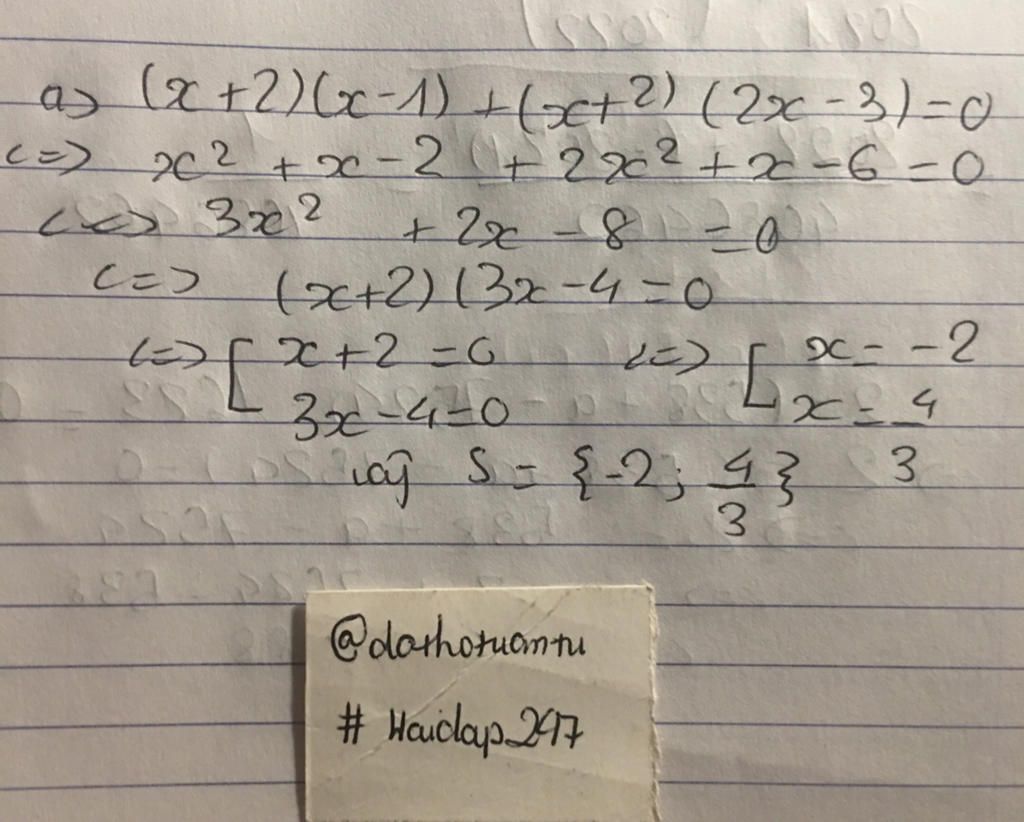 a) (x+2)(x-1) + (x+2) (2x-3)=0
<=> x² + x - 2 + 2x² + x - 6 = 0
<=> 3x² + 2x - 8 = 0
<=> (x+2) (3x-4=0
<=> [ x+2 = 0 <=> [ x = -2
3x-4=0 x = 4/3
vậy S = {-2; 4/3}
@dathotuantu
# Haidap_247